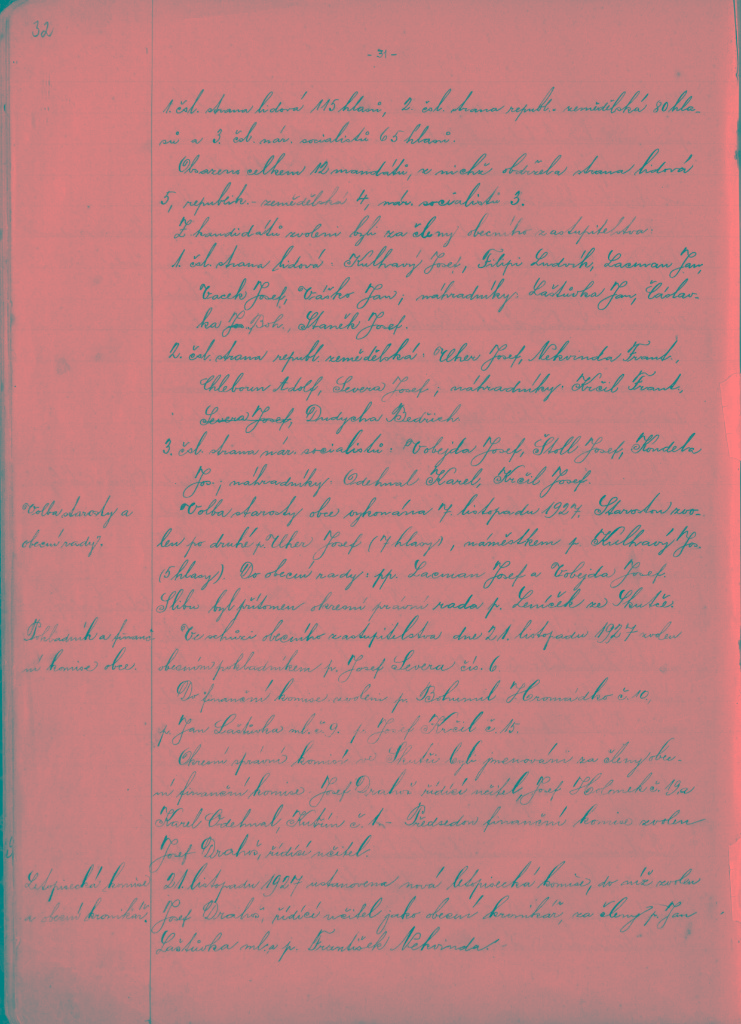 32
- 31 -
1. čsl. strana lidová 115 hlasů, 2. čsl. strana republ. zemědělská 80 hla-
sů a 3. čsl. nár. socialistů 65 hlasů.
Obsazeno celkem 12 mandátů, z nichž obdržela strana lidová
5, republik. - zemědělská 4, nár. socialistů 3.
Z kandidátů zvoleni byli za členy obecního zastupitelstva:
1. čsl. strana lidová: Kulhavý Josef, Filipi Ludvík, Lacman Jan,
Vacek Josef, Vaško Jan; náhradníky: Laštůvka Jan, Čáslav-
ka Boh., Staněk Josef.
2. čsl. strana republ. zemědělská: Uher Josef, Nekvinda Frant.,
Chleboun Adolf, Severa Josef; náhradníky: Kršil Frant.,
Severa Josef, Dudycha Bedřich
3. čsl. strana nár. socialistů: Vobejda Josef, Štoll Josef, Kondela
Jos; náhradníky: Odehnal Karel, Kršil Josef.
Volba starosty a
obecní rady.
Volba starosty obce vykonána 7. listopadu 1927. Starostou zvo-
len po druhé p. Uher Josef (7 hlasy), náměstkem p. Kulhavý Jos
(5 hlasy). Do obecní rady: pp. Lacman Josef a Vobejda Josef.
Slibu byl přítomen okresní správní rada p. Leníček ze Skutče.
Pokladník a finanč
ní komise obce.
Ve schůzi obecního zastupitelstva dne 21. listopadu 1927 zvolen
obecním pokladníkem p. Josef Severa čís. 6.
Do finanční komise zvolen p. Bohumil Hromádko č. 10,
p. Jan Laštůvka ml. č. 9. p. Josef Kršil č. 15.
Okresní správní komisí ve Skutči byli jmenováni za členy obec-
ní finanční komise Josef Drahoš řídící učitel, Josef Holomek č. 13 a
Karel Odehnal, č. 1. Předsedou finanční komise zvolen
Josef Drahoš, řídící učitel.
Letopisecká komise
a obecní kronikář.
21. listopadu 1927 ustanovena nová letopisecká komise, do níž zvolen
Josef Drahoš, řídící učitel jako obecní kronikář, za členy p. Jan
Laštůvka ml. a p. František Nekvinda.